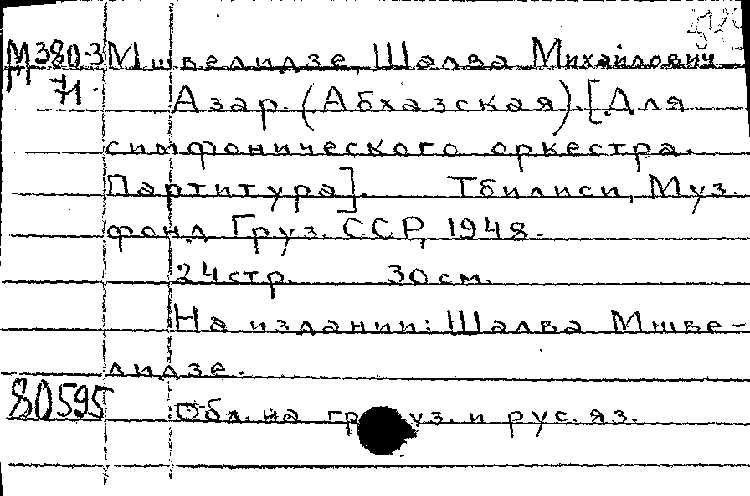 М380-3 Мшвелидзе, Шалва Михайлович
71 Азар. (Абхазская). [Для
симфонического оркестра.
Партитура]. Тбилиси, Муз.
фонд Груз. ССР, 1948.
24 стр. 30 см.
На издании: Шалва Мшве-
лидзе.
80595 Обл. на груз. и рус. яз.